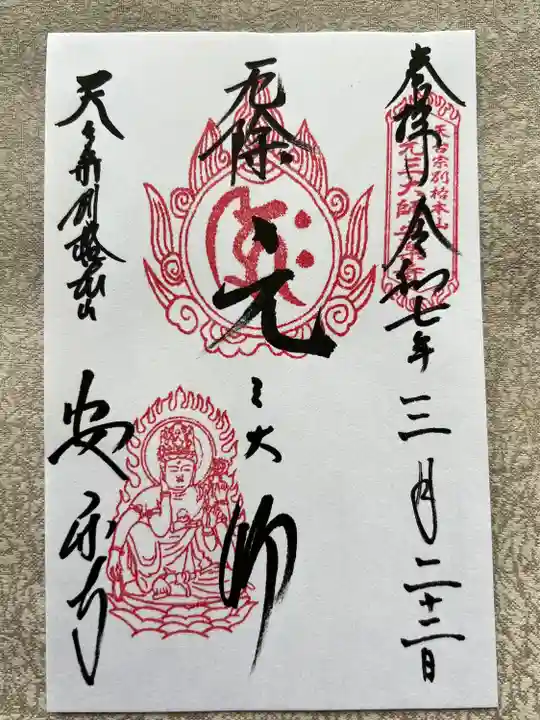 奉拝 令和七年三月二十二日
天台宗別格本山
元三大師 安楽寺
厄除 元三大師
天台宗別格本山
安楽寺